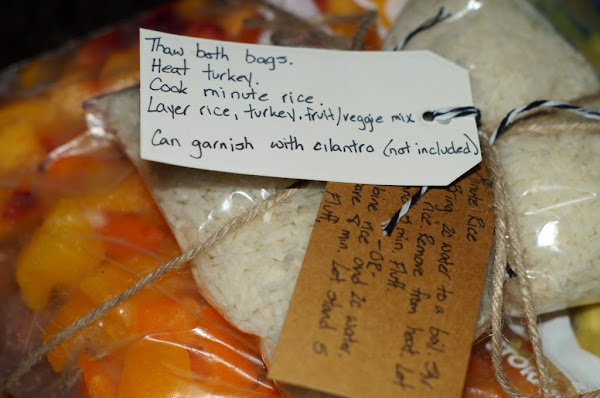 Thaw both bags.
Heat turkey.
Cook minute rice.
Layer rice, turkey, fruit/veggie mix
Can garnish with cilantro (not included)
Minute Rice
2c water to a boil. Stir
rice. Remove from heat. Let
min. Fluff
-OR-
rice and 2c water.
8 min. Let stand 5
Fluff.